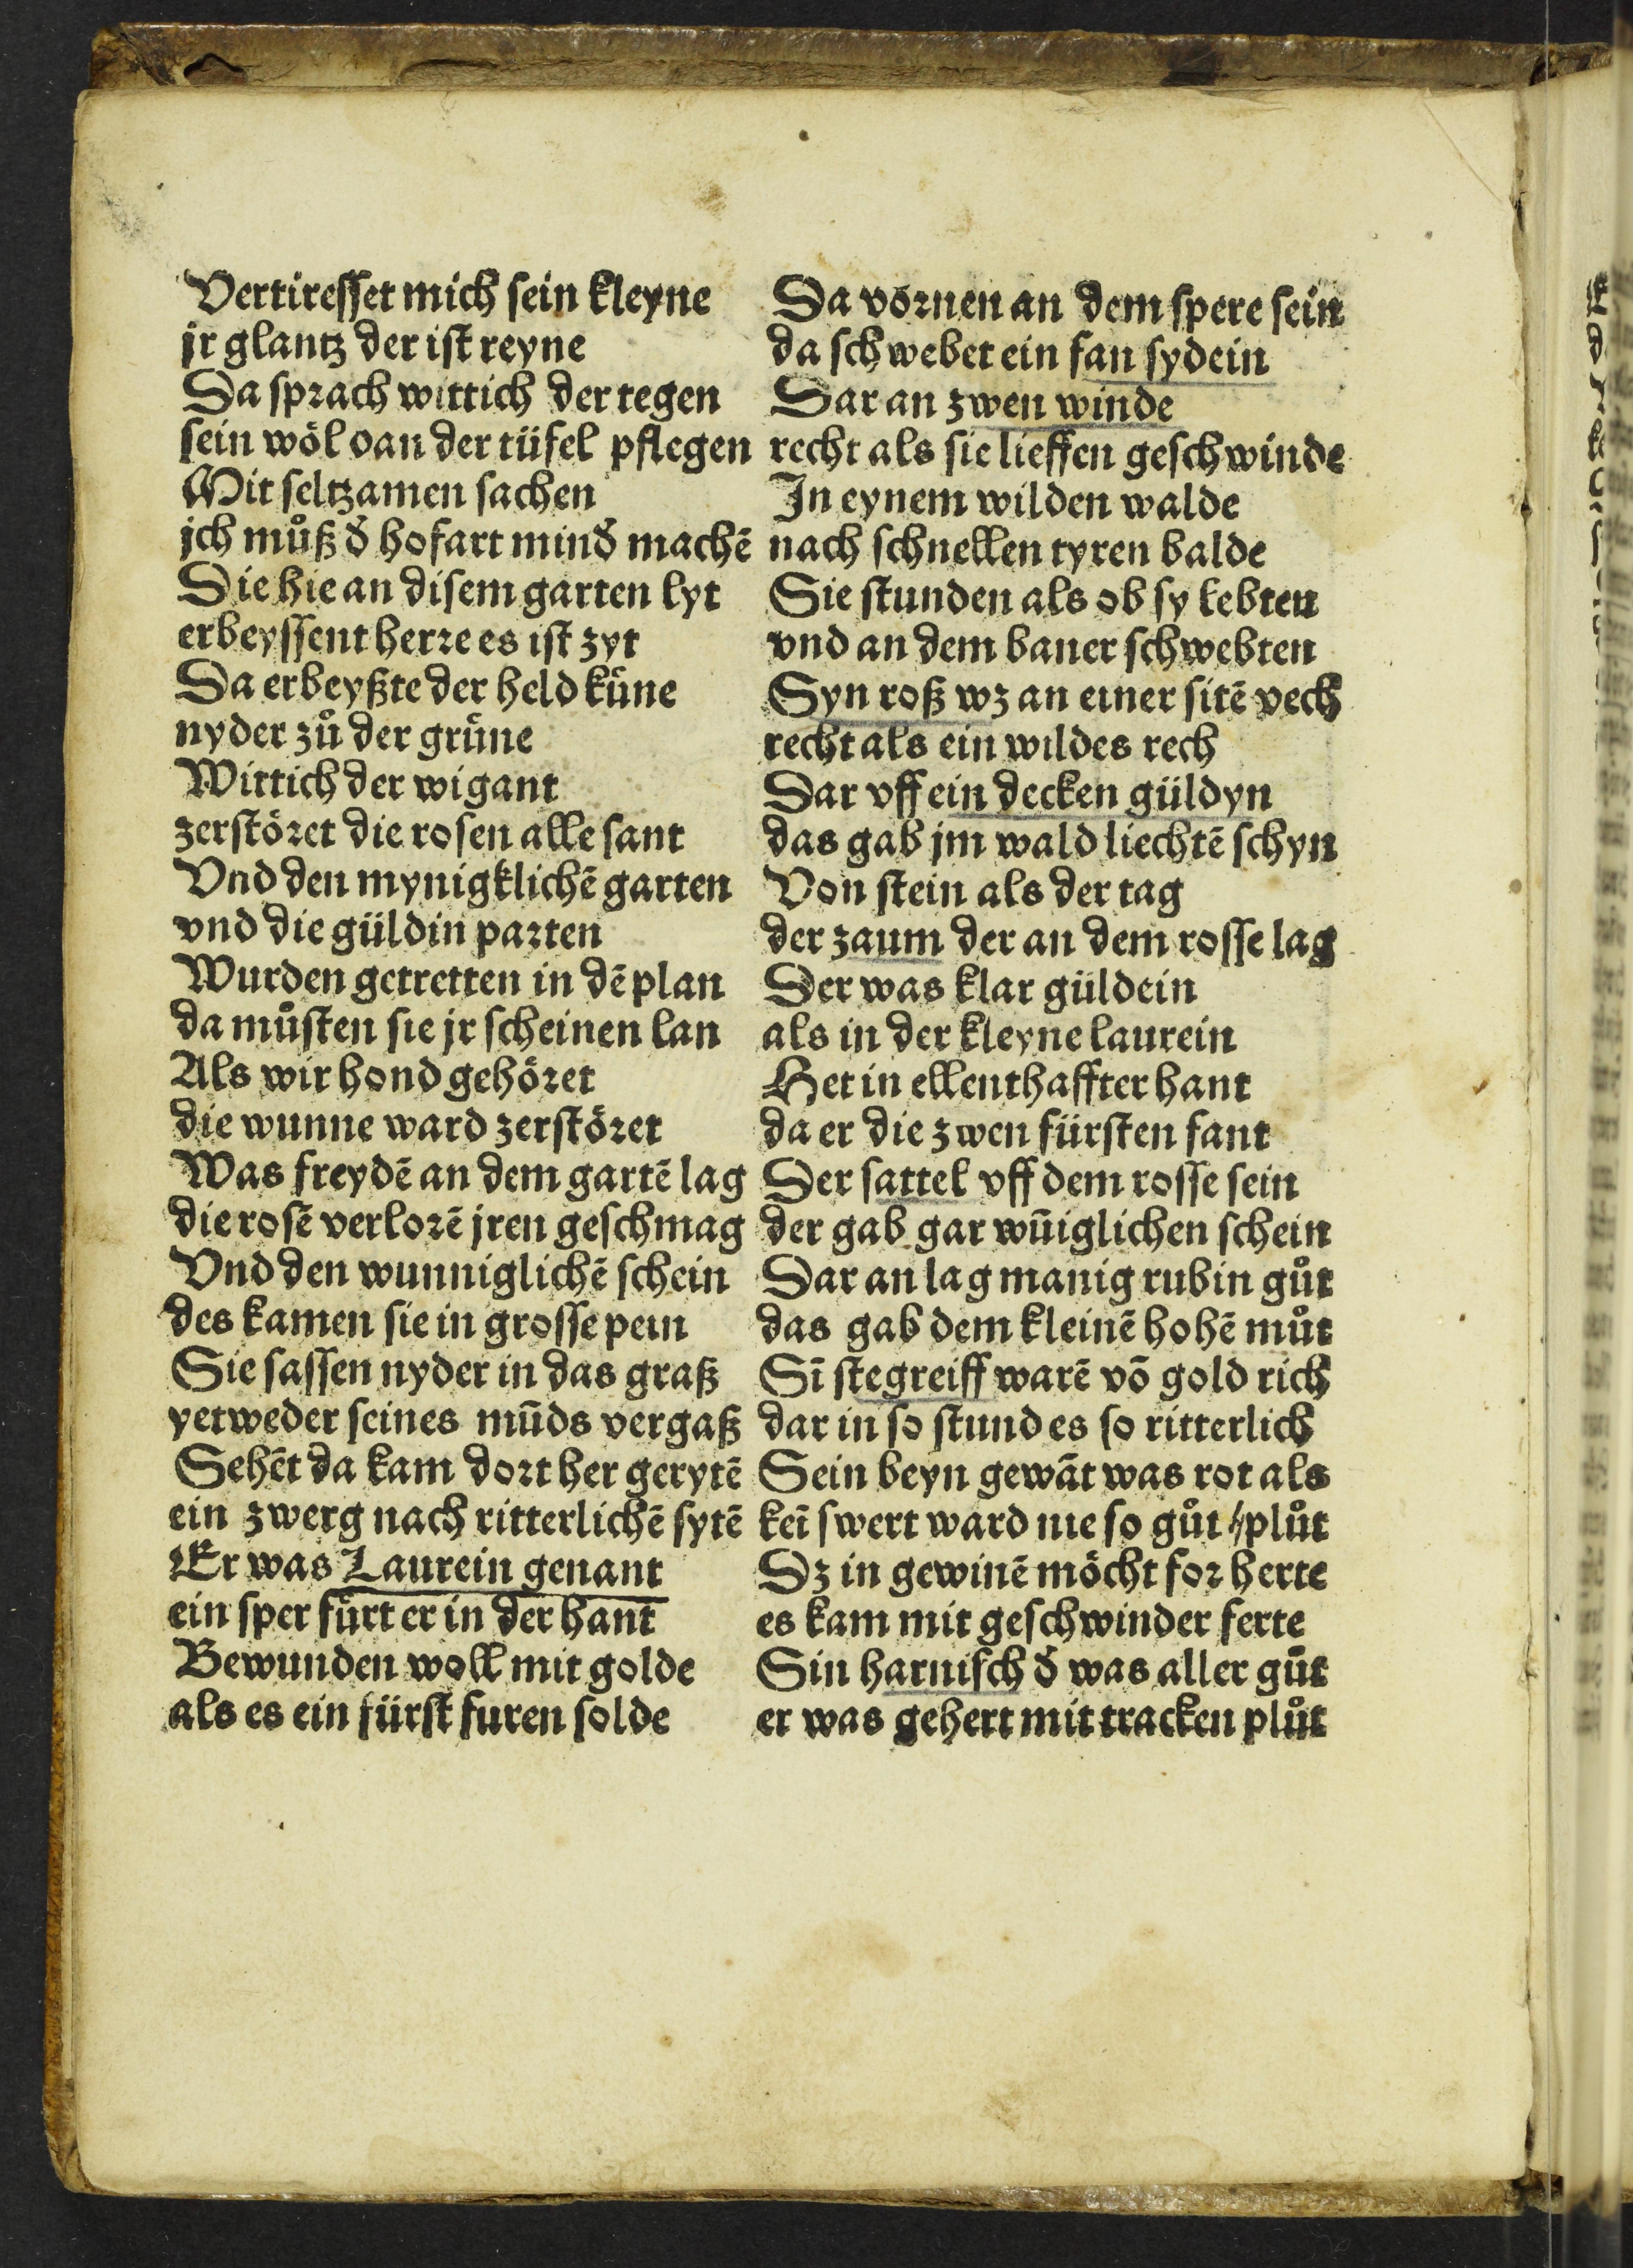 Vertiresset mich sein kleyne
jr glantz der ist reyne
Da sprach wittich der tegen
sein wöl oan der tüfel pflegen
Mit seltzamen sachen
jch muͦß d̄ hofart mind̄ machē
Die hie an disem garten lyt
erbeyssent herre es ist zyt
Da erbeyßte der held küne
nyder zuͦ der grüne
Wittich der wigant
zerstöret die rosen alle sant
Vnd den mynigklichē garten
vnd die güldin parten
Wurden getretten in dē plan
da muͦsten sie jr scheinen lan
Als wir hond gehöret
die wunne ward zerstöret
Was freydē an dem gartē lag
die rosē verlorē jren geschmag
Vnd den wunniglichē schein
des kamen sie in grosse pein
Sie sassen nyder in das graß
yetweder seines mūds vergaß
Sehēt da kam dort her gerytē
ein zwerg nach ritterlichē sytē
Er was Laurein genant
ein sper fürt er in der hant
Bewunden woll mit golde
als es ein fürst furen solde
Da vornen an dem spere sein
da schwebet ein fan sydein
Dar an zwen winde
recht als sie lieffen geschwinde
In eynem wilden walde
nach schnellen tyren balde
Sie stunden als ob sy lebten
vnd an dem baner schwebten
Syn roß wz an einer sitē vech
recht als ein wildes rech
Dar vff ein decken güldyn
das gab jm wald liechtē schyn
Von stein als der tag
der zaum der an dem rosse lag
Der was klar güldein
als in der kleyne laurein
Het in ellenthaffter hant
da er die zwen fürsten fant
Der sattel vff dem rosse sein
der gab gar wūiglichen schein
Dar an lag manig rubin guͦt
das gab dem kleinē hohē muͦt
Sī stegreiff warē vō gold rich
dar in so stund es so ritterlich
Sein beyn gewāt was rot als
keī swert ward nie so guͦt pluͦt
Dz in gewinē möcht for herte
es kam mit geschwinder ferte
Sin harnisch d̄ was aller guͦt
er was gehert mit tracken pluͦt